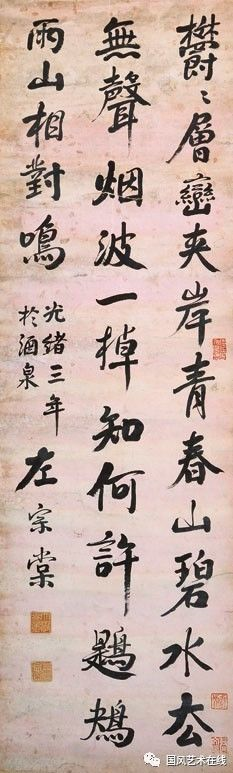 欝〻層巒夾岸青春山碧水厺
無聲烟波一棹知何許鶗鴂
兩山相對鳴
光緒三年
於酒泉
左宗棠
国风艺术在线